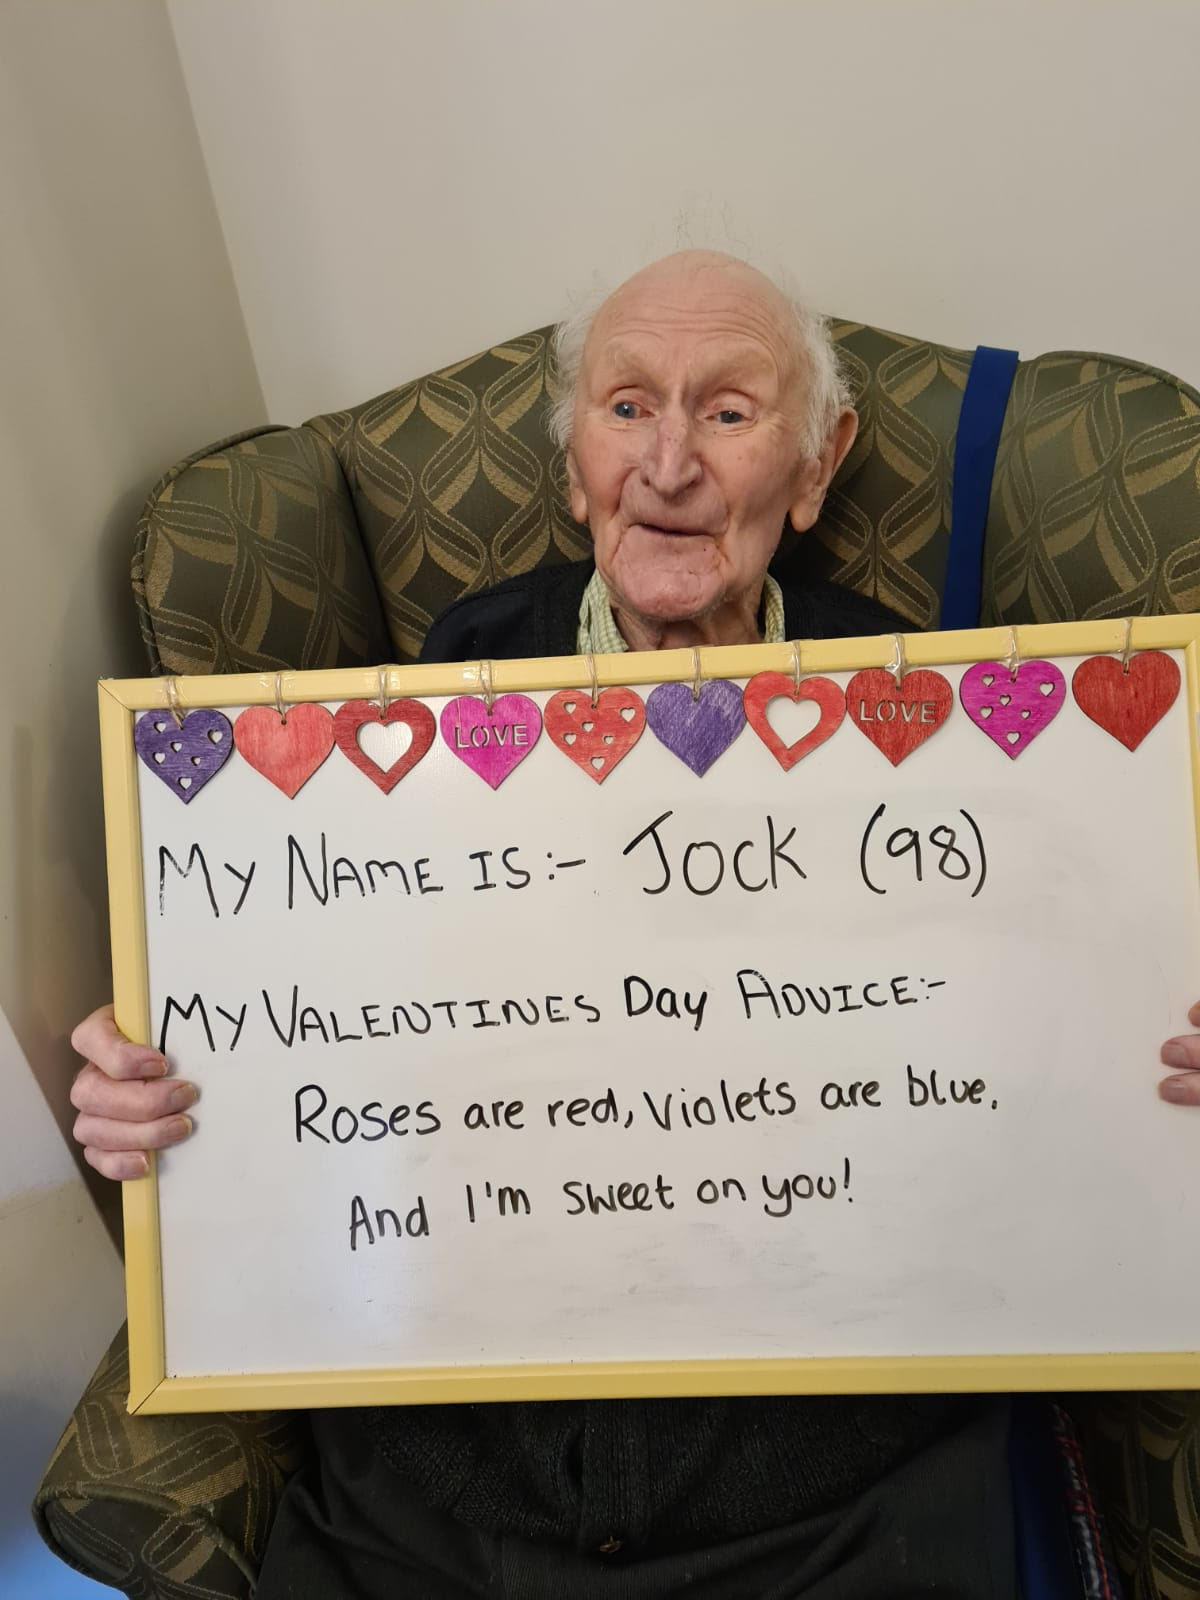 LOVE LOVE
My NAME IS:- JOCK (98)
My VALENTINES Day ADVICE:-
Roses are red, Violets are blue.
And I'm sweet on you!